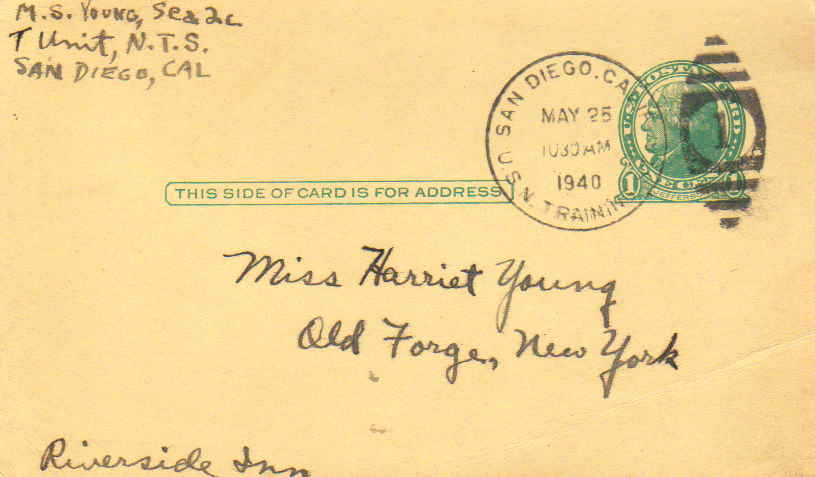 M.S. YOUNG, Sea 2c
T Unit, N.T.S.
SAN DIEGO, CAL
SAN DIEGO, CA
MAY 25
1030 AM
1940
U.S.N. TRAININ
U.S. POSTAL CARD
ONE CENT
1 1
JEFFERSON
1
THIS SIDE OF CARD IS FOR ADDRESS
Miss Harriet Young
Old Forge, New York
Riverside Inn